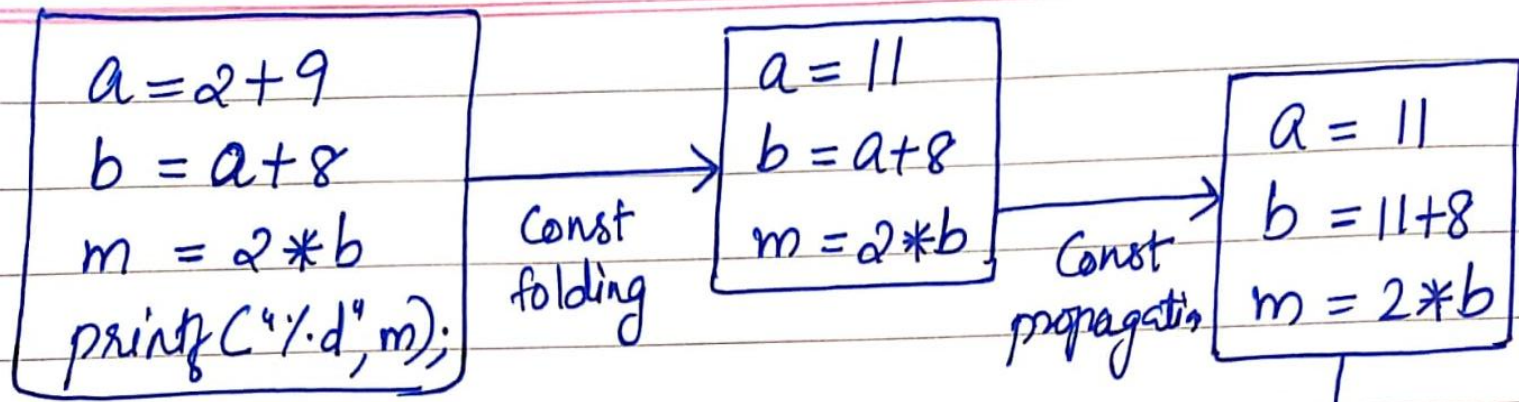 a = 2+9
b = a+8
m = 2*b
printf("%d", m);
Const
folding
a = 11
b = a+8
m = 2*b
Const
propagatin
a = 11
b = 11+8
m = 2*b